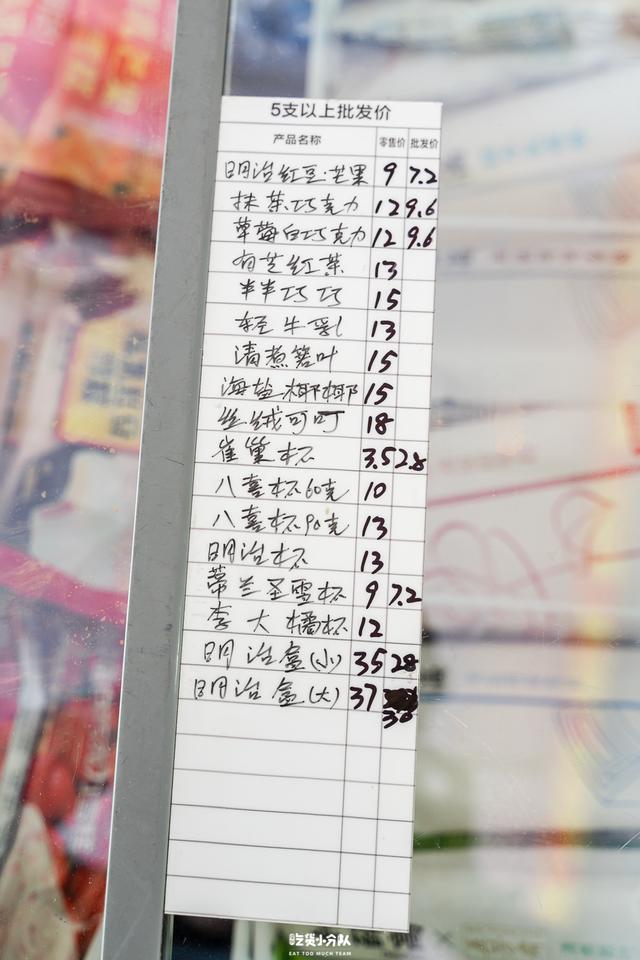 5支以上批发价
产品名称 零售价 批发价
明治红豆·芒果 9 7.2
抹茶巧克力 12 9.6
草莓白巧克力 12 9.6
有芝红茶 13
半半巧巧 15
轻牛乳 13
清煮箬叶 15
海盐椰椰 15
丝绒可可 18
雀巢杯 3.5 2.8
八喜杯60克 10
八喜杯90克 13
明治杯 13
蒂兰圣雪杯 9 7.2
李大橘杯 12
明治盒(小) 35 28
明治盒(大) 37
30
吃货小分队
EAT TOO MUCH TEAM